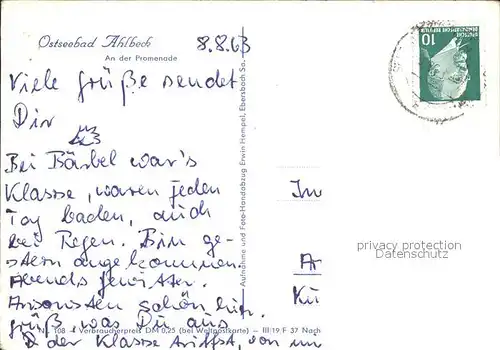 Ostseebad Ahlbeck
8.8.63
An der Promenade
Viele Grüße sendet
Dir
Bei Bärbel war's
Klasse, waren jeden
Tag baden, auch
bei Regen. Bin ge-
stern angekommen.
Abends Gewitter.
Ansonsten schön hier.
grüß was Du aus
der Klasse triffst, von mir
Nr. 108 Verbraucherpreis DM 0,25 (bei Weltpostkarte) – III/19/F 37 Nach
Aufnahme und Foto-Handabzug Erwin Hempel, Ebersbach Sa.
10
DEUTSCHE
DEMOKRATISCHE REPUBLIK
In
Ar
Kü
privacy protection
Datenschutz